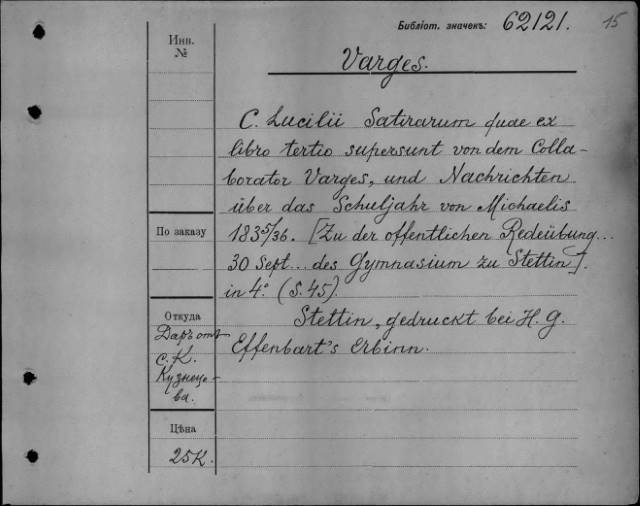 Библіот. значекъ: 62121. 15
Инв.
№
Varges.
C. Lucilii Satirarum quae ex
libro tertio supersunt von dem Colla-
borator Varges, und Nachrichten
über das Schuljahr von Michaelis
По заказу
1835/36. [Zu der offentlichen Redeübung...
30 Sept... des Gymnasium zu Stettin].
in 4° (S. 45).
Откуда
Даръ отъ
С. К.
Кузнецо-
ва.
Stettin, gedruckt bei H. G.
Effenbart's Erbinn.
Цѣна
25К.